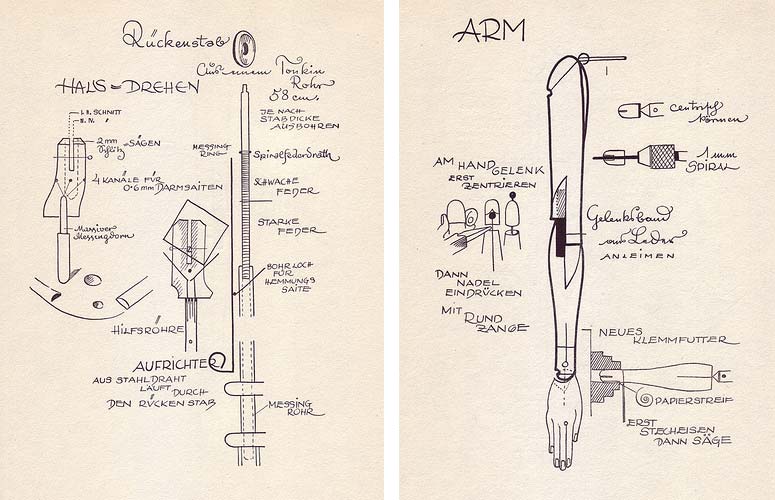 Rückenstab
Aus einem Tonkin
Rohr
58 cm.
HALS=DREHEN
JE NACH
STABDICKE
AUSBOHREN
I. B. SCHNITT
2 mm SÄGEN
Schlitz
MESSING
RING
4 KANÄLE FÜR
0.6 mm DARMSAITEN
SCHWACHE
FEDER
STARKE
FEDER
Massiver
Messingdorn
BOHRLOCH
FÜR
HEMMUNGS
SAITE
HILFSRÖHRE
AUFRICHTER
AUS STAHLDRAHT
LÄUFT DURCH
DEN RÜCKENSTAB
MESSING
ROHR
ARM
centrisch
körnen
1 mm
SPIRAL
AM HANDGELENK
ERST
ZENTRIEREN
Gelenksband
aus Leder
ANLEIMEN
DANN
NADEL
EINDRÜCKEN
MIT RUND
ZANGE
NEUES
KLEMMFUTTER
PAPIERSTREIF
ERST
STECHEISEN
DANN SÄGE